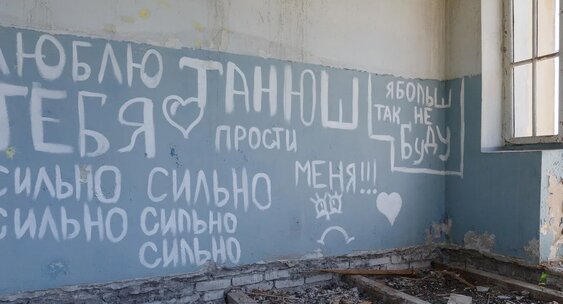 ЛЮБЛЮ
ТЕБЯ
СИЛЬНО СИЛЬНО
СИЛЬНО СИЛЬНО
СИЛЬНО
ТАНЮШ
ПРОСТИ
МЕНЯ!!!
Я БОЛЬШ
ТАК НЕ
БУДУ